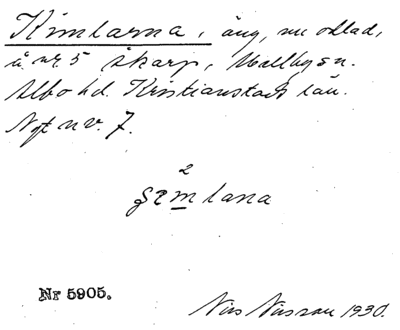 Kimlarna, äng, nu odlad,
å nr 5 Skarp, Vallby sn.
Albo hd. Kristianstads län.
Nyt n v. 7.
2
mlana
Nr 5905.
Nils Nilsson 1930.